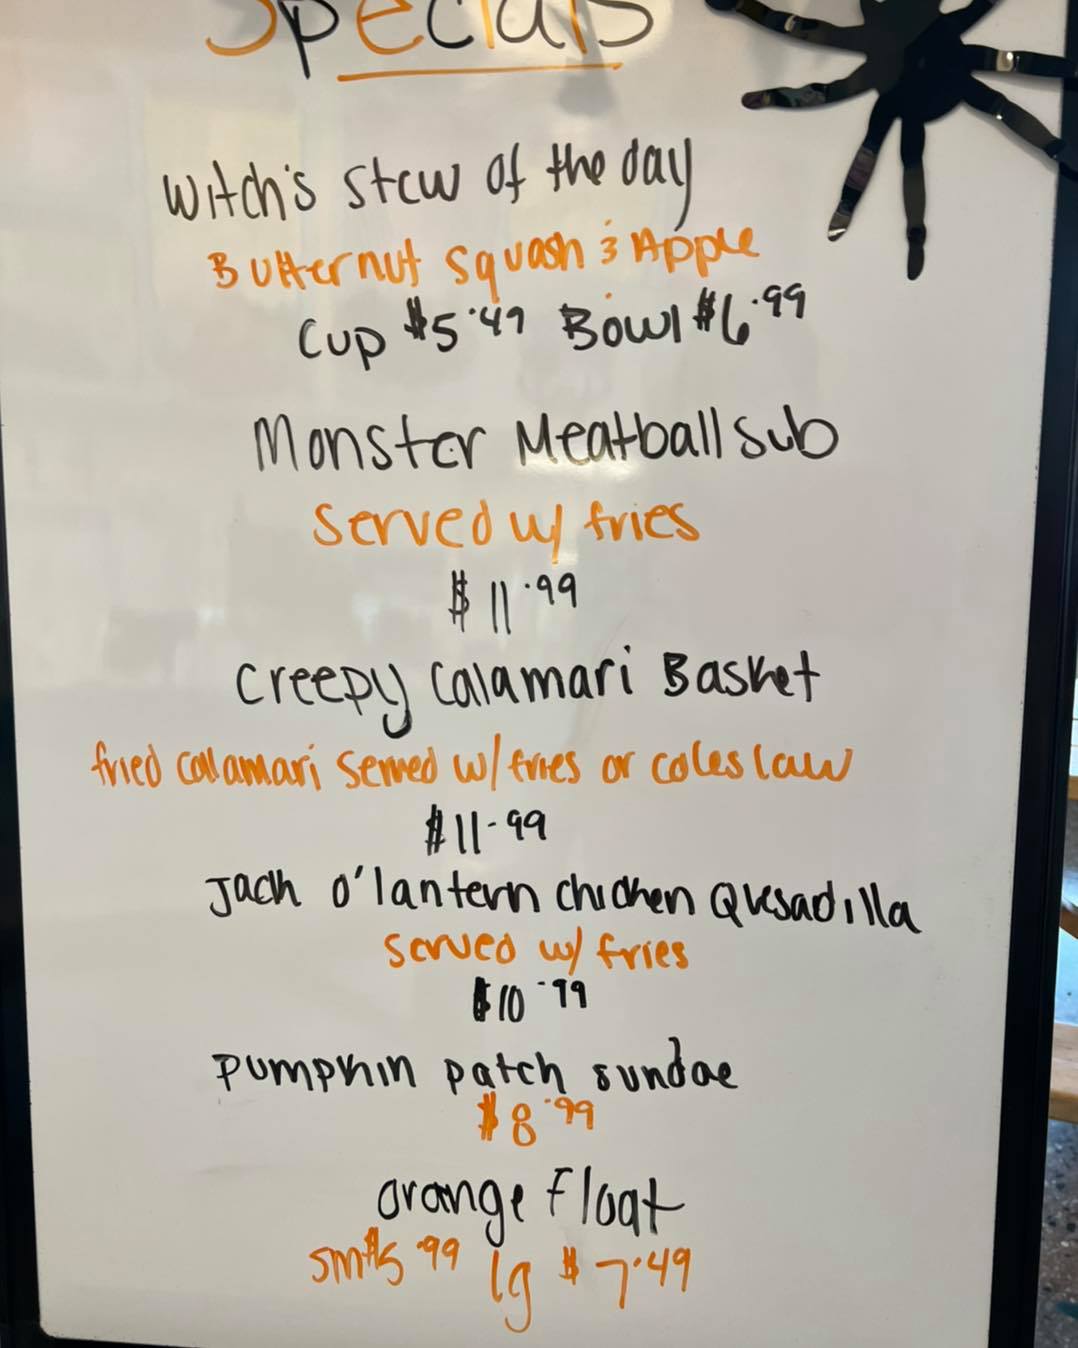 Specials
Witch's Stew of the day
Butternut Squash & Apple
Cup $5.49 Bowl $6.99
Monster Meatball Sub
Served w/ fries
$11.99
Creepy Calamari Basket
fried calamari served w/ fries or coleslaw
$11.99
Jack o'lantern chicken Quesadilla
served w/ fries
$10.99
Pumpkin patch sundae
$8.99
orange Float
sm $5.99 lg $7.49